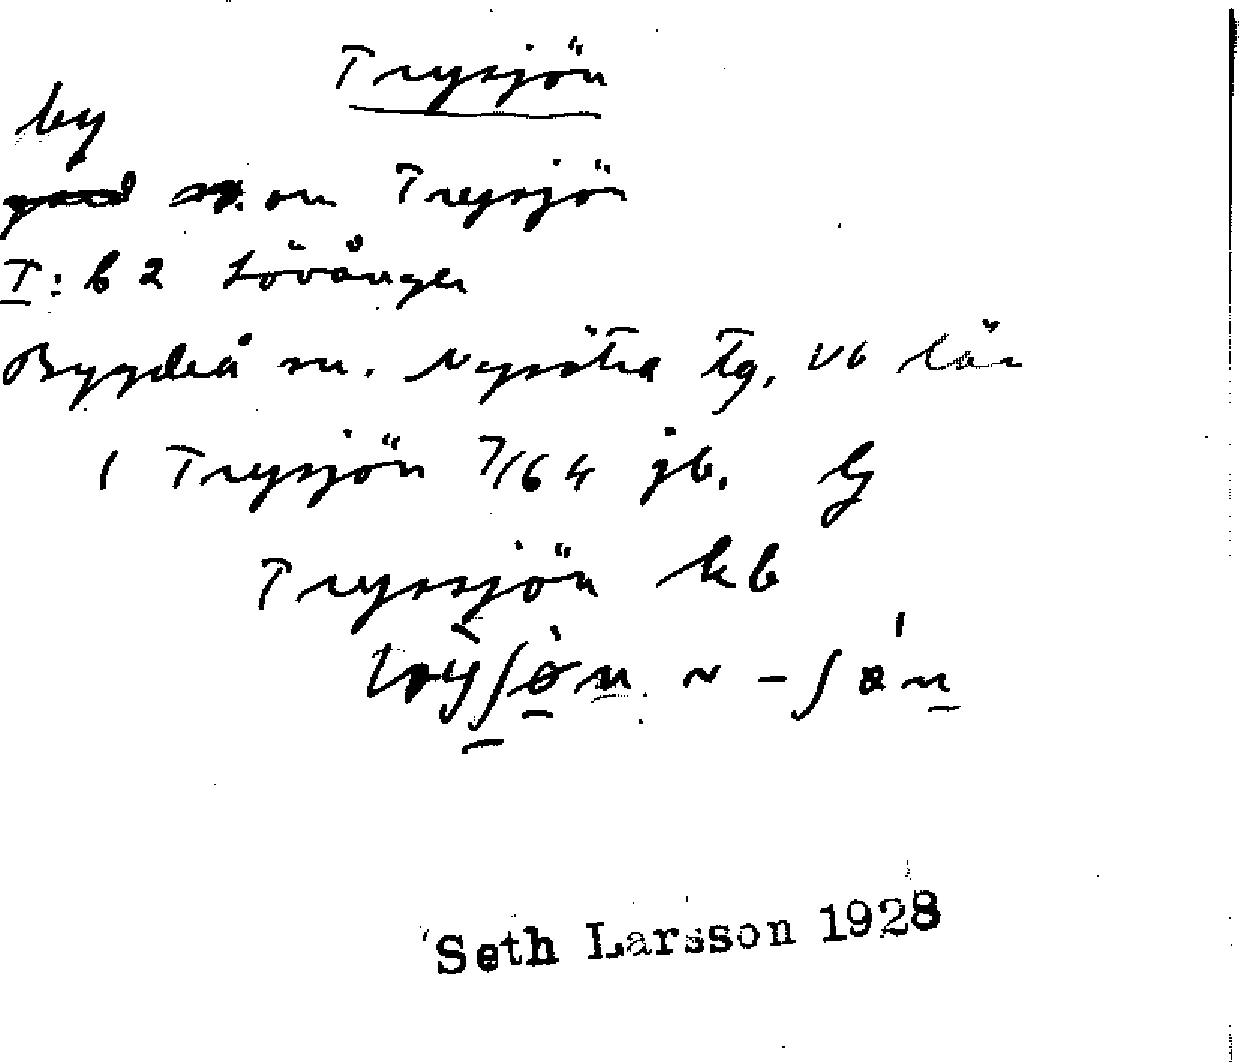 Trysjön
by
gård sv. om Trysjön
I: b 2 Lövånger
Bygdeå sn. Nysätra tg, Vb län
1 Trysjön 7/64 jb.
Tryssjön kb
trỳʃø̀n ~ -ʃǿn
Seth Larsson 1928